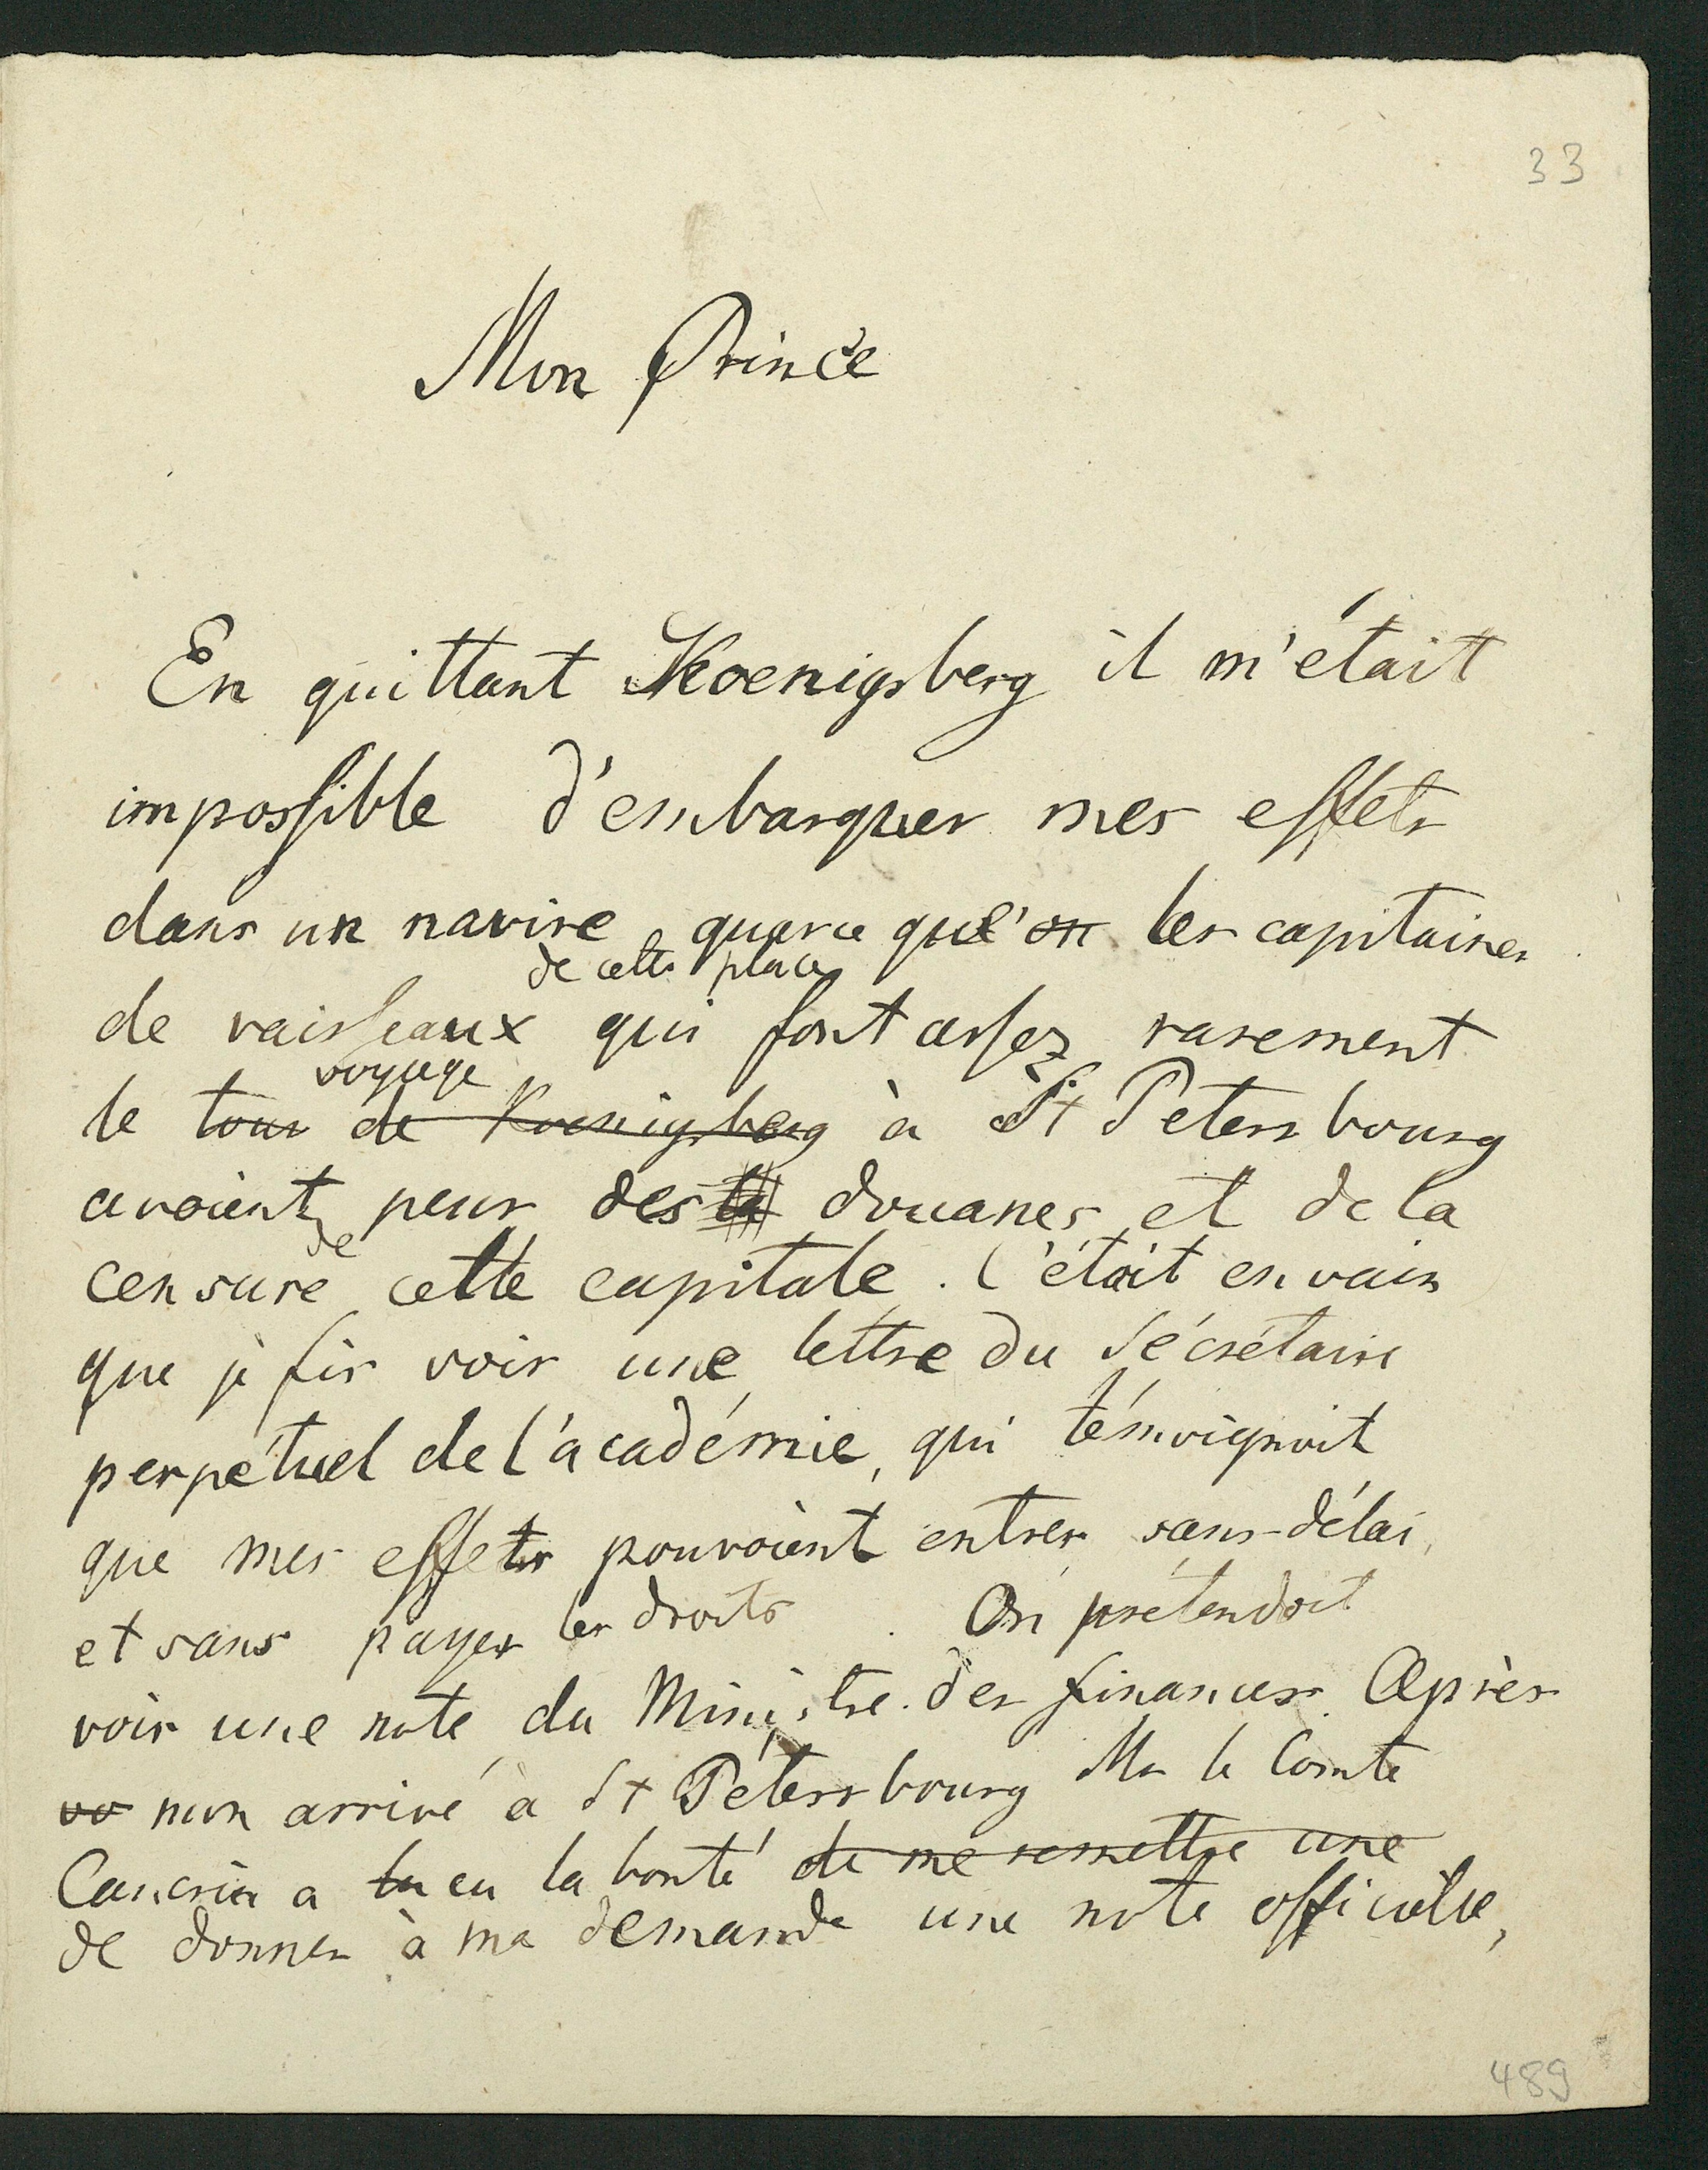 33
Mon Prince
En quittant Koenigsberg il m'était
impossible d'embarquer mes effets
dans un navire, quarce que'on les capitaines
de cette place
de vaisseaux qui font assez rarement
voyage
le tour de Koenigsberg à St Petersbourg
avoient peur des la douanes et de la
de
censure cette capitale. C'étoit en vain
que je fis voir une lettre du Sécrétaire
perpétuel de l'académie, qui témoignoit
que mes effets pouvoient entrer sans délai,
et sans payer les droits. On prétendoit
voir une note du Ministre des finances. Après
vo mon arrivé à St Pétersbourg Mr le Comte
Cancrin a eu la bonté de me remettre une
de donner à ma demande une note officielle,
489